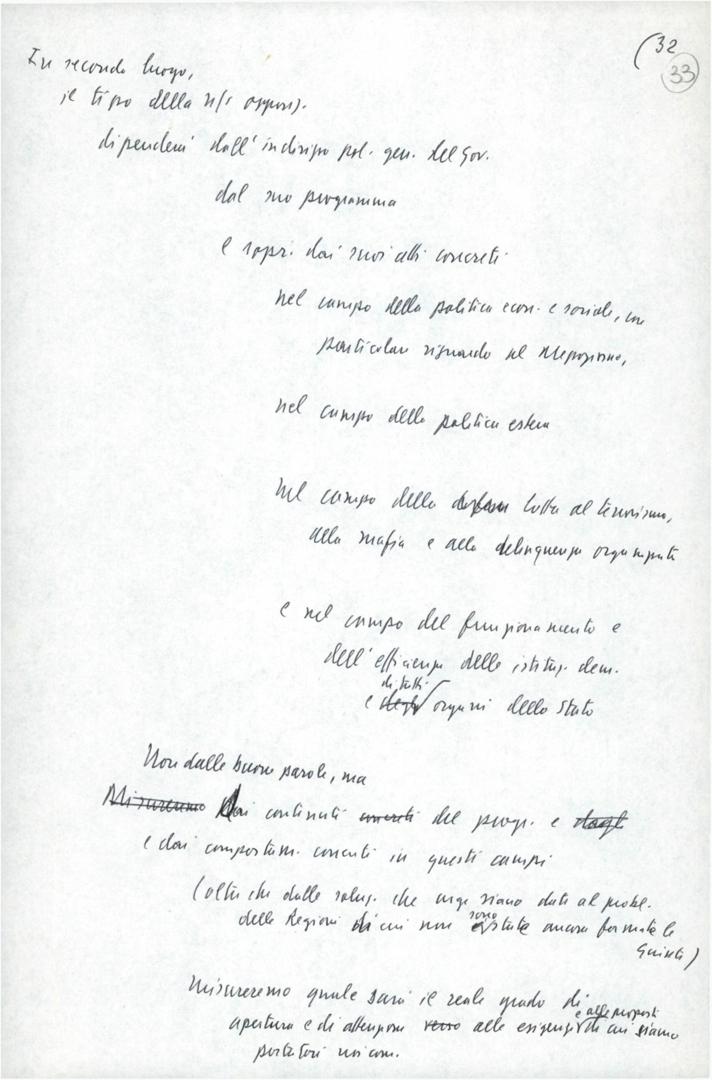 (32
33
In secondo luogo,
il tipo della n/s oppos).
dipenderà dall'indirizzo pol. gen. del Gov.
dal suo programma
e sopr. dai suoi atti concreti
nel campo della politica econ. e sociale, con
particolare riguardo al Mezzogiorno,
nel campo della politica estera
nel campo della lotta al terrorismo,
alla mafia e alla delinquenza organizzata
e nel campo del funzionamento e
dell'efficienza delle istituz. dem.
di tutti
e degli organi dello Stato
Non dalle buone parole, ma
Misureremo dai contenuti concreti del progr. e dagli
e dai comportam. concreti in questi campi
(oltre che dalle soluz. che urge siano date al probl.
delle Regioni di cui non sono state ancora formate le
Giunte)
Misureremo quale sarà il reale grado di
e alle proposte
apertura e di attenzione verso alle esigenze di cui siamo
portatori noi com.